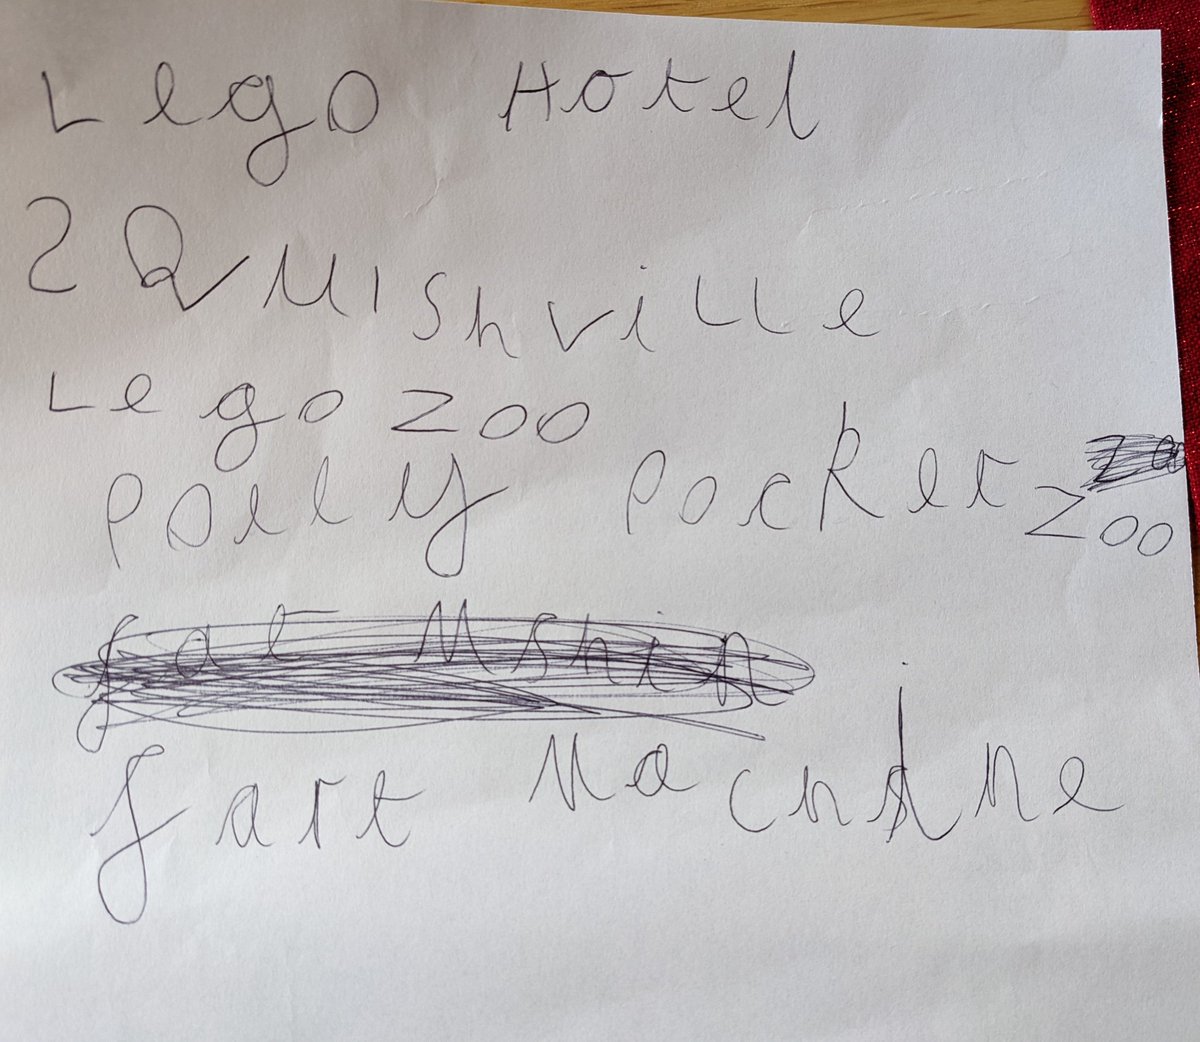 Lego Hotel
2 QuIshville
Lego zoo
Polly Pocket zoo
fat Mshin
fart Machine